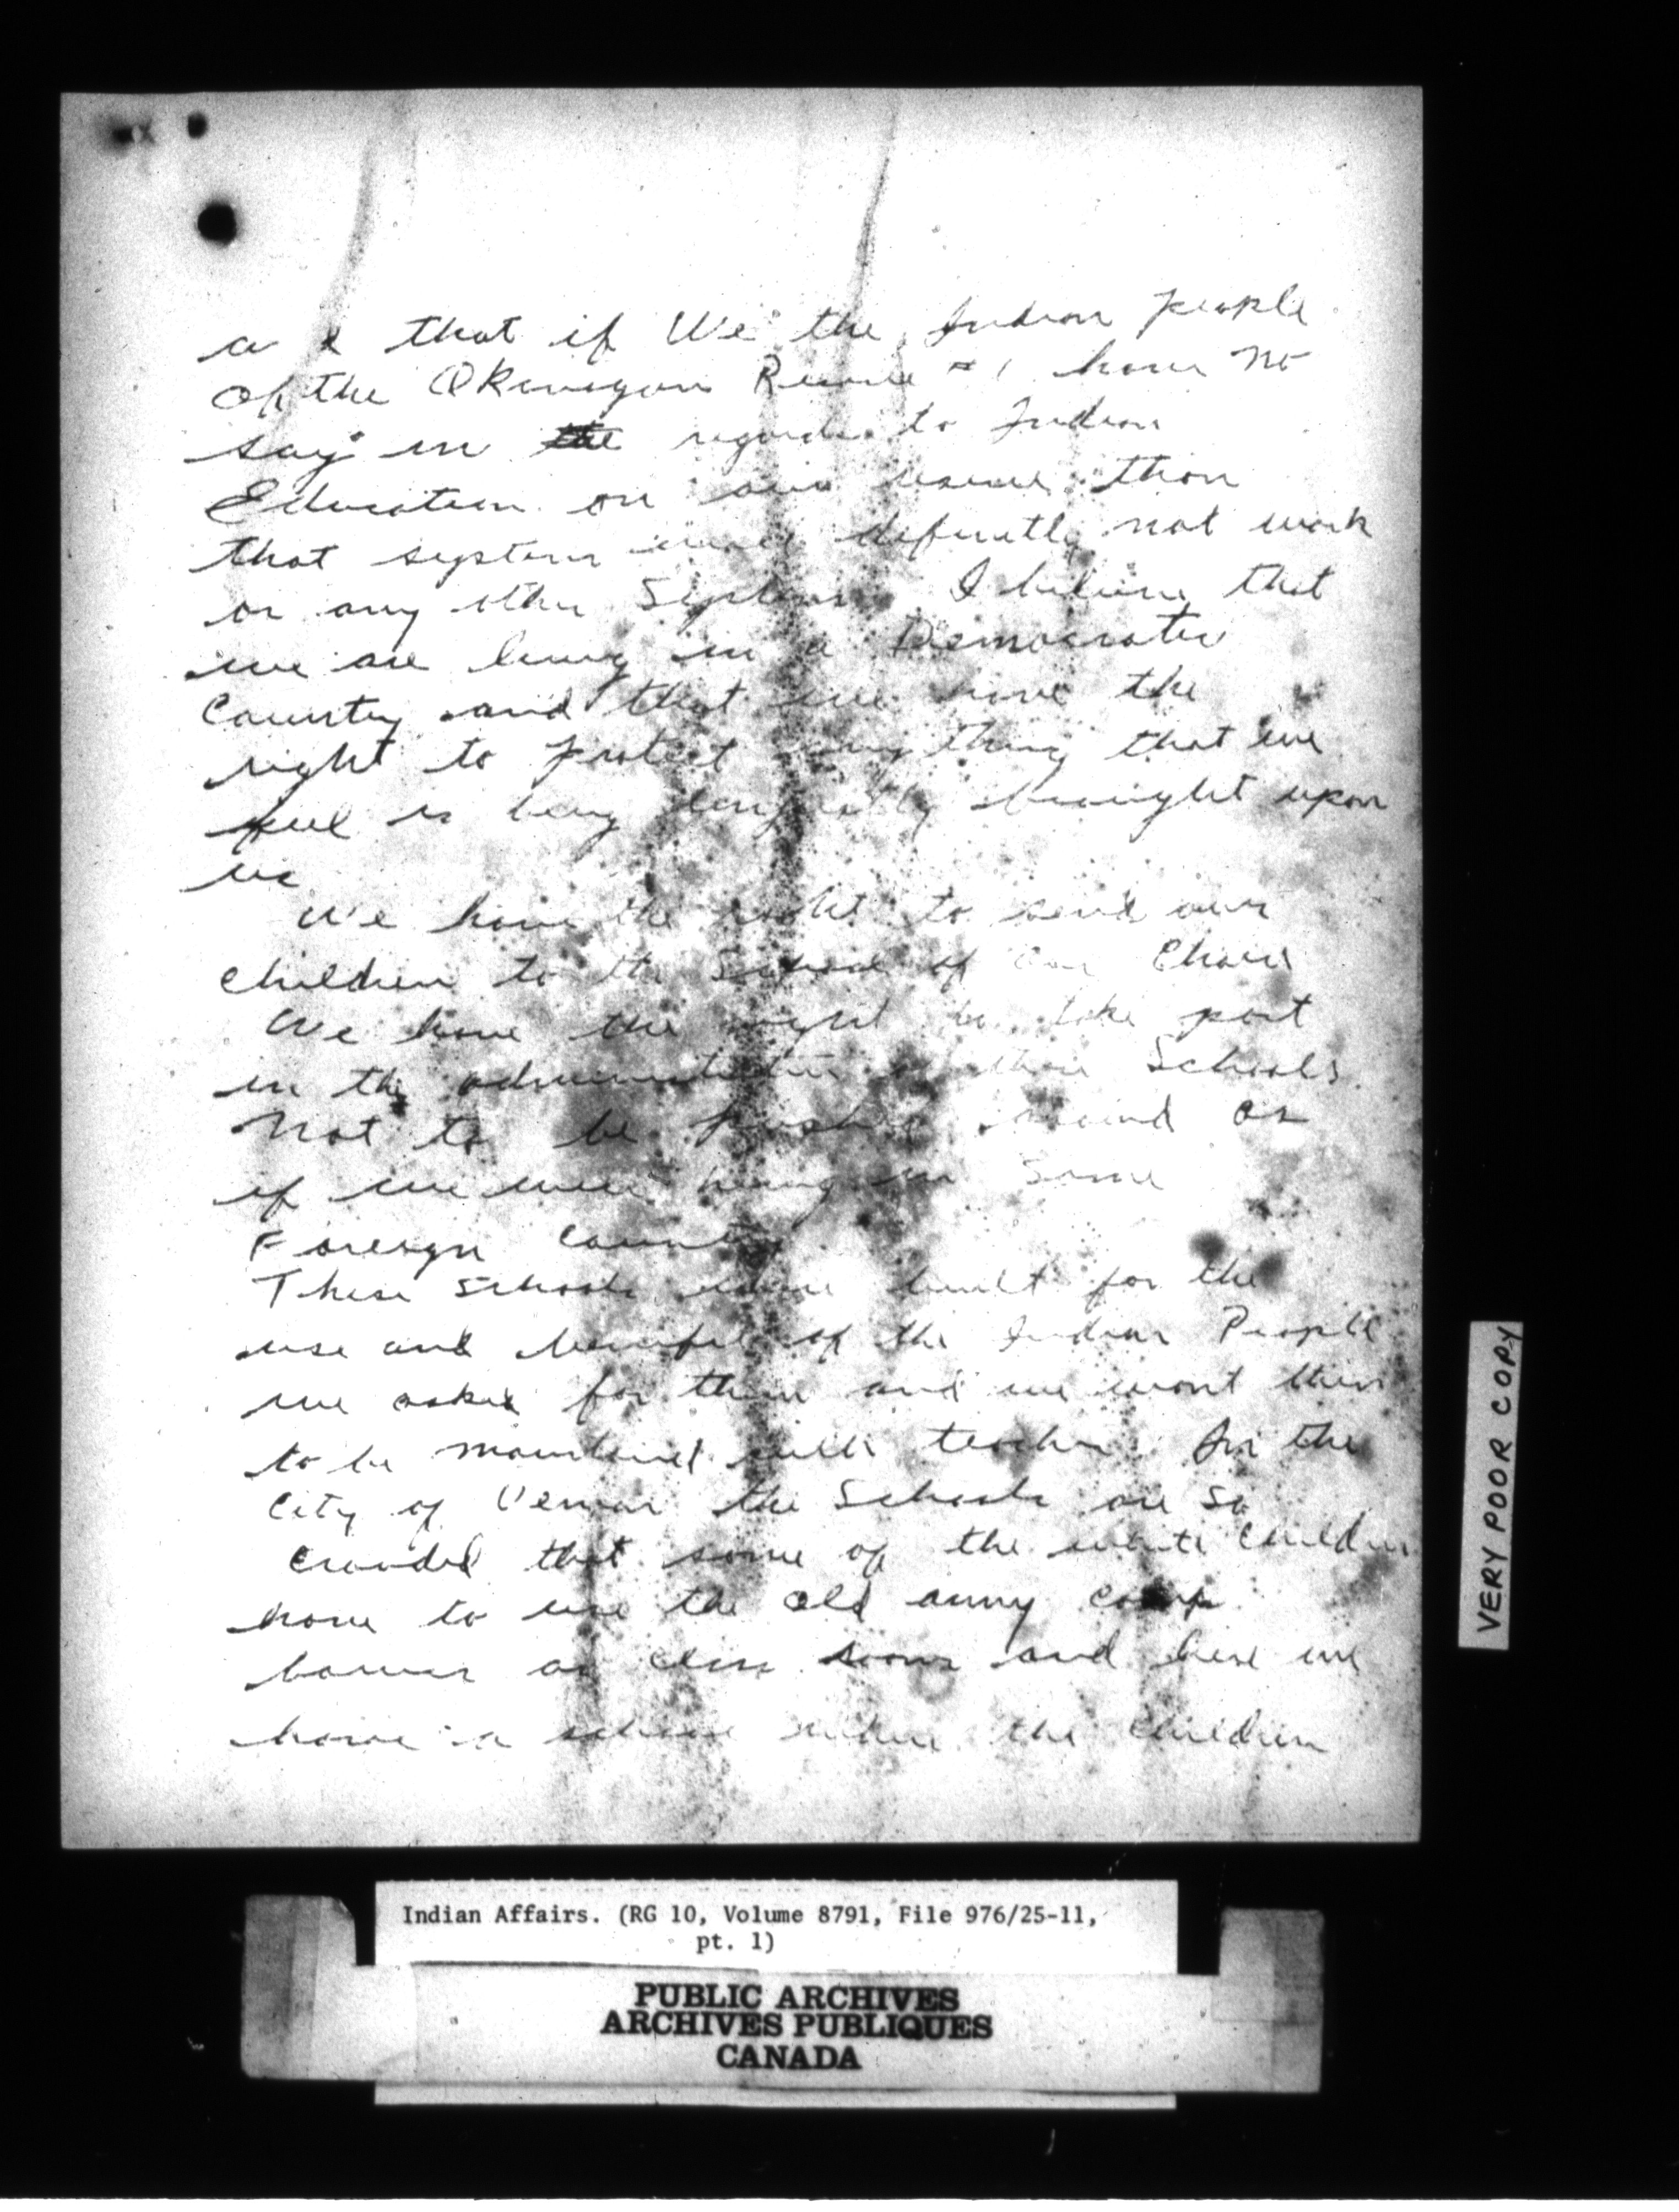 that if We the Indian people
of the Okanagan Reserve #1 have no
say in the regards to Indian
Education on our reserve than
that system will definetly not work
or any other System. I believe that
we are living in a Democratic
Country and that we have the
right to protest any thing that we
feel is being brought upon
us
We have the right to send our
children to the School of Our Choice
We have the right to take part
in the administration of these Schools.
Not to be pushed around as
if we were living in some
Foreign Country
These schools were built for the
use and benefit of the Indian People
we asked for them and we want them
to be with teachers. In the
City of Vernon the Schools are so
crowded that some of the white children
have to use the old army camp
as class rooms and here we
have a school where the children
VERY POOR COPY
Indian Affairs. (RG 10, Volume 8791, File 976/25-11,
pt. 1)
PUBLIC ARCHIVES
ARCHIVES PUBLIQUES
CANADA